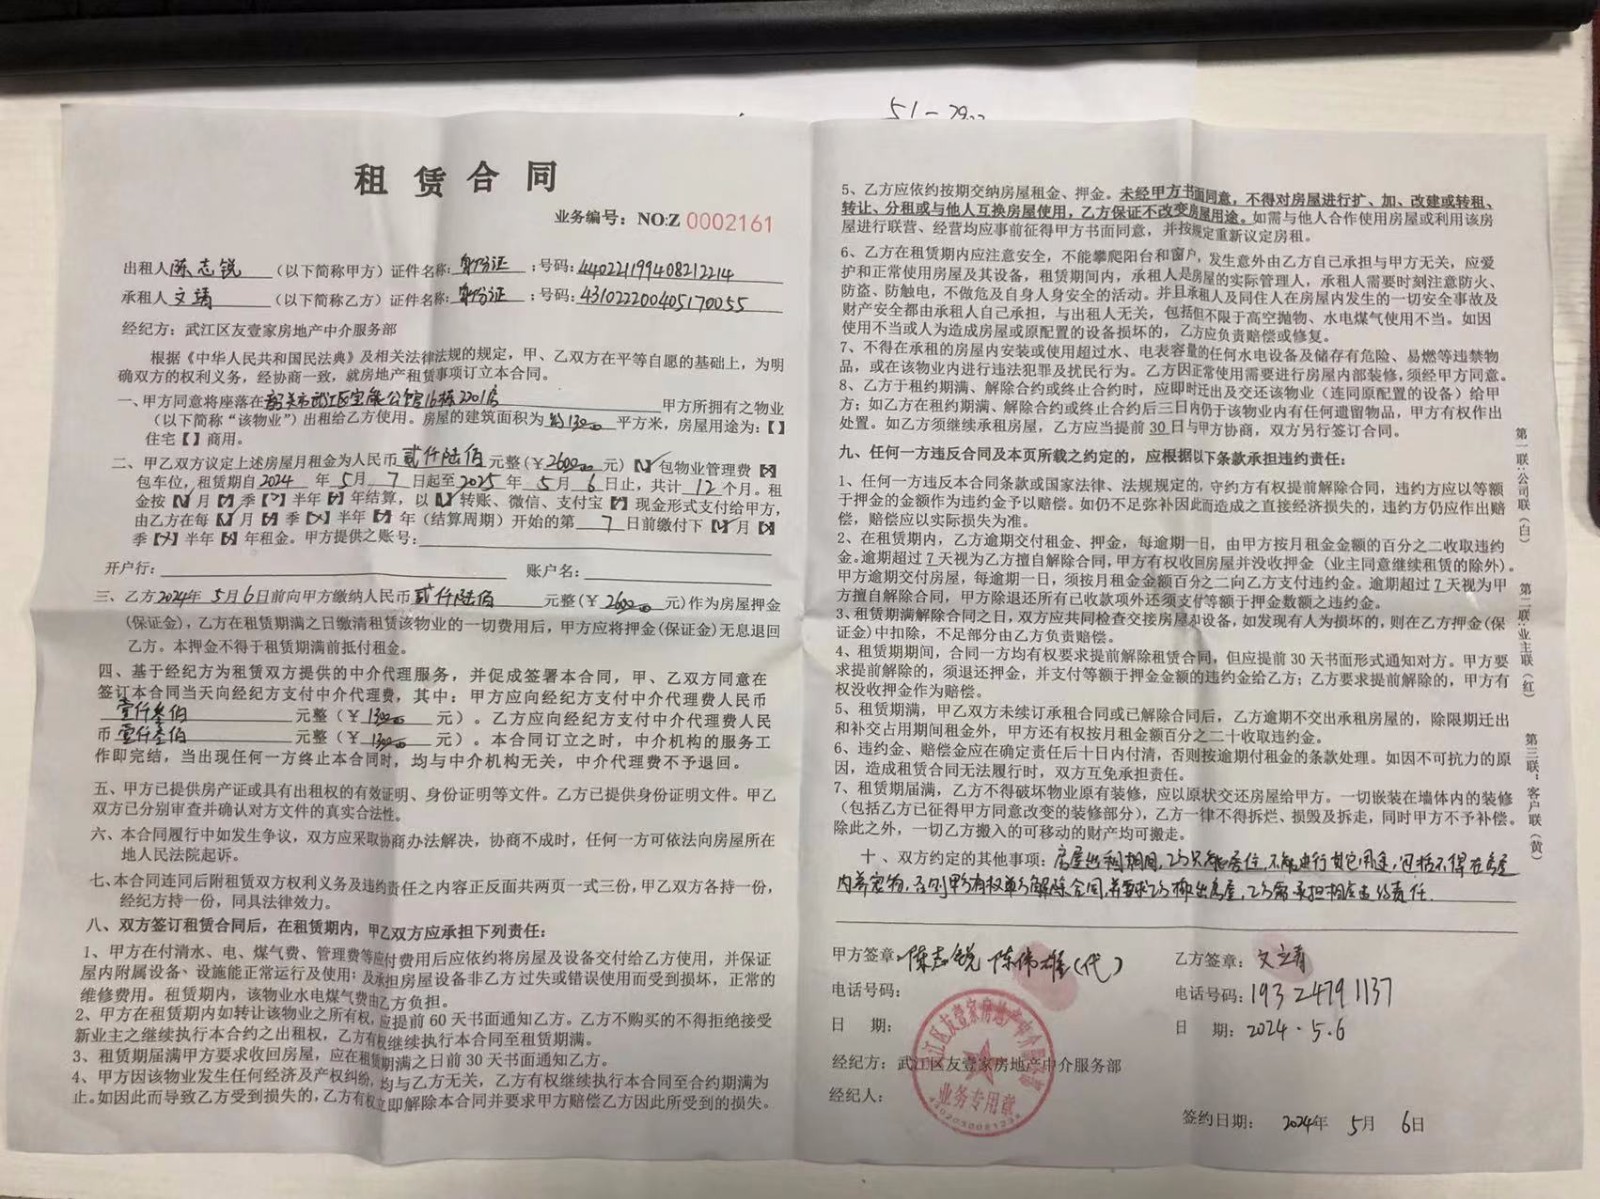 51-
租赁合同
业务编号：NO:Z 0002161
出租人陈志锐（以下简称甲方）证件名称：身份证；号码：440221199408212214
承租人文靖（以下简称乙方）证件名称：身份证；号码：431022200405170055
经纪方：武江区友壹家房地产中介服务部
根据《中华人民共和国民法典》及相关法律法规的规定，甲、乙双方在平等自愿的基础上，为明
确双方的权利义务，经协商一致，就房地产租赁事项订立本合同。
一、甲方同意将座落在韶关市武江区宝能公馆16栋2201房甲方所拥有之物业
（以下简称“该物业”）出租给乙方使用。房屋的建筑面积为约130.00平方米，房屋用途为：【】
住宅【】商用。
二、甲乙双方议定上述房屋月租金为人民币贰仟陆佰元整（￥2600.00元）【】包物业管理费【】
包车位，租赁期自2024年5月7日起至2025年5月6日止，共计12个月。租
金按【】月【】季【】半年【】年结算，以【】转账、微信、支付宝【】现金形式支付给甲方，
由乙方在每【】月【】季【】半年【】年（结算周期）开始的第7日前缴付下【】月【】
季【】半年【】年租金。甲方提供之账号：
开户行： 账户名：
三、乙方2024年5月6日前向甲方缴纳人民币贰仟陆佰元整（￥2600.00元）作为房屋押金
（保证金），乙方在租赁期满之日缴清租赁该物业的一切费用后，甲方应将押金（保证金）无息退回
乙方。本押金不得于租赁期满前抵付租金。
四、基于经纪方为租赁双方提供的中介代理服务，并促成签署本合同，甲、乙双方同意在
签订本合同当天向经纪方支付中介代理费，其中：甲方应向经纪方支付中介代理费人民币
壹仟叁佰元整（￥1300.00元）。乙方应向经纪方支付中介代理费人民
币壹仟叁佰元整（￥1300.00元）。本合同订立之时，中介机构的服务工
作即完结，当出现任何一方终止本合同时，均与中介机构无关，中介代理费不予退回。
五、甲方已提供房产证或具有出租权的有效证明、身份证明等文件。乙方已提供身份证明文件。甲乙
双方已分别审查并确认对方文件的真实合法性。
六、本合同履行中如发生争议，双方应采取协商办法解决，协商不成时，任何一方可依法向房屋所在
地人民法院起诉。
七、本合同连同后附租赁双方权利义务及违约责任之内容正反面共两页一式三份，甲乙双方各持一份，
经纪方持一份，同具法律效力。
八、双方签订租赁合同后，在租赁期内，甲乙双方应承担下列责任：
1、甲方在付清水、电、煤气费、管理费等应付费用后应依约将房屋及设备交付给乙方使用，并保证
屋内附属设备、设施能正常运行及使用；及承担房屋设备非乙方过失或错误使用而受到损坏，正常的
维修费用。租赁期内，该物业水电煤气费由乙方负担。
2、甲方在租赁期内如转让该物业之所有权，应提前60天书面通知乙方。乙方不购买的不得拒绝接受
新业主之继续执行本合约之出租权，乙方有权继续执行本合同至租赁期满。
3、租赁期届满甲方要求收回房屋，应在租赁期满之日前30天书面通知乙方。
4、甲方因该物业发生任何经济及产权纠纷，均与乙方无关，乙方有权继续执行本合同至合约期满为
止。如因此而导致乙方受到损失的，乙方有权立即解除本合同并要求甲方赔偿乙方因此所受到的损失。
5、乙方应依约按期交纳房屋租金、押金。未经甲方书面同意，不得对房屋进行扩、加、改建或转租、
转让、分租或与他人互换房屋使用，乙方保证不改变房屋用途。如需与他人合作使用房屋或利用该房
屋进行联营、经营均应事前征得甲方书面同意，并按规定重新议定房租。
6、乙方在租赁期内应注意安全，不能攀爬阳台和窗户，发生意外由乙方自己承担与甲方无关，应爱
护和正常使用房屋及其设备，租赁期间内，承租人是房屋的实际管理人，承租人需要时刻注意防火、
防盗、防触电，不做危及自身人身安全的活动。并且承租人及同住人在房屋内发生的一切安全事故及
财产安全都由承租人自己承担，与出租人无关，包括但不限于高空抛物、水电煤气使用不当。如因
使用不当或人为造成房屋或原配置的设备损坏的，乙方应负责赔偿或修复。
7、不得在承租的房屋内安装或使用超过水、电表容量的任何水电设备及储存有危险、易燃等违禁物
品，或在该物业内进行违法犯罪及扰民行为。乙方因正常使用需要进行房屋内部装修，须经甲方同意。
8、乙方于租约期满、解除合约或终止合约时，应即时迁出及交还该物业（连同原配置的设备）给甲
方；如乙方在租约期满、解除合约或终止合约后三日内仍于该物业内有任何遗留物品，甲方有权作出
处置。如乙方须继续承租房屋，乙方应当提前30日与甲方协商，双方另行签订合同。
九、任何一方违反合同及本页所载之约定的，应根据以下条款承担违约责任：
1、任何一方违反本合同条款或国家法律、法规规定的，守约方有权提前解除合同，违约方应以等额
于押金的金额作为违约金予以赔偿。如仍不足弥补因此而造成之直接经济损失的，违约方仍应作出赔
偿，赔偿应以实际损失为准。
2、在租赁期内，乙方逾期交付租金、押金，每逾期一日，由甲方按月租金金额的百分之二收取违约
金。逾期超过7天视为乙方擅自解除合同，甲方有权收回房屋并没收押金（业主同意继续租赁的除外）。
甲方逾期交付房屋，每逾期一日，须按月租金金额百分之二向乙方支付违约金。逾期超过7天视为甲
方擅自解除合同，甲方除退还所有已收款项外还须支付等额于押金数额之违约金。
3、租赁期满解除合同之日，双方应共同检查交接房屋和设备，如发现有人为损坏的，则在乙方押金（保
证金）中扣除，不足部分由乙方负责赔偿。
4、租赁期期间，合同一方均有权要求提前解除租赁合同，但应提前30天书面形式通知对方。甲方要
求提前解除的，须退还押金，并支付等额于押金金额的违约金给乙方；乙方要求提前解除的，甲方有
权没收押金作为赔偿。
5、租赁期满，甲乙双方未续订承租合同或已解除合同后，乙方逾期不交出承租房屋的，除限期迁出
和补交占用期间租金外，甲方还有权按月租金额百分之二十收取违约金。
6、违约金、赔偿金应在确定责任后十日内付清，否则按逾期付租金的条款处理。如因不可抗力的原
因，造成租赁合同无法履行时，双方互免承担责任。
7、租赁期届满，乙方不得破坏物业原有装修，应以原状交还房屋给甲方。一切嵌装在墙体内的装修
（包括乙方已征得甲方同意改变的装修部分），乙方一律不得拆烂、损毁及拆走，同时甲方不予补偿。
除此之外，一切乙方搬入的可移动的财产均可搬走。
十、双方约定的其他事项：房屋出租期间，乙方只能居住，不能进行其它用途，包括不得在房屋
内养宠物，否则甲方有权单方解除合同，并要求乙方搬出房屋，乙方需承担相应违约责任。
甲方签章：陈志锐 陈伟雄（代）
电话号码：
日 期：
经纪方：武江区友壹家房地产中介服务部
经纪人：
乙方签章：文靖
电话号码：19324791137
日 期：2024.5.6
签约日期：2024年5月6日
武江区友壹家房地产中介服务部
业务专用章
第一联：公司联（白）
第二联：业主联（红）
第三联：客户联（黄）